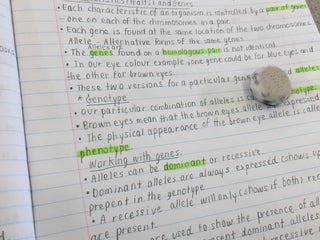 Traits and Genes
• Each characteristic of an organism is controlled by a pair of genes
- one on each of the chromosomes in a pair.
• Each gene is found at the same location of the two chromosomes
Allele - Alternative forms of the same genes.
Alleles are
• The genes found on a homologous pair is not identical.
• In our eye colour example, one gene could be for blue eyes and
the other for brown eyes.
• These two versions for a particular alleles
* Genotype.
• Our particular combination of alleles is
• Brown eyes mean that the brown eyes allele
• The physical appearance of the brown eye allele is called
phenotype.
Working with genes.
• Alleles can be dominant or recessive.
• Dominant alleles are always expressed (shows up
prepent in the genotype
• A recessive allele will only (shows if both) rec
are present.
are used to show the presence of all
present dominant alleles
recessive